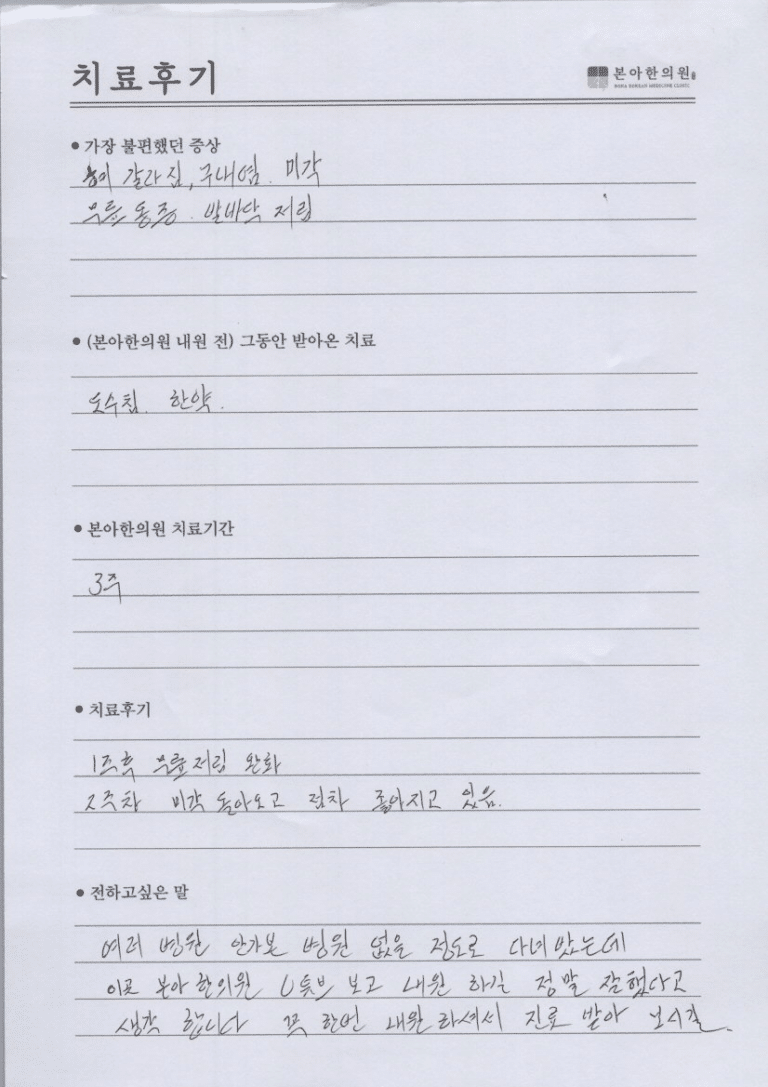 치료후기
본아한의원
BONA KOREAN MEDICINE CLINIC
● 가장 불편했던 증상
갈라짐, 구내염. 미각
무릎통증. 발바닥 저림
● (본아한의원 내원 전) 그동안 받아온 치료
도수침. 한약.
● 본아한의원 치료기간
3주
● 치료후기
1주후 무릎저림 완화
2주차 미각 돌아오고 점차 좋아지고 있음.
● 전하고싶은 말
여러 병원 안가본 병원 없을 정도로 다녀봤는데
이곳 본아한의원 U튜브 보고 내원 하길 정말 잘했다고
생각 합니다 꼭 한번 내원하셔서 진료 받아 보시길.